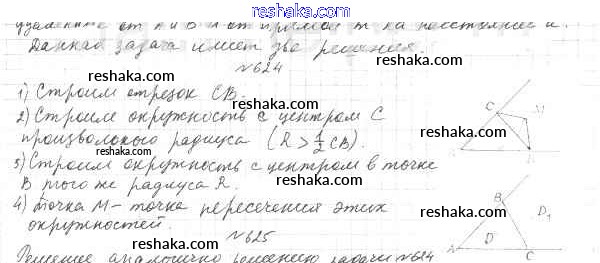 reshaka.com
удаленные от А и В и от прямой m на расстояние и.
Данная задача имеет две решения.
№624
reshaka.com
1) Строим отрезок СВ.
reshaka.com
2) Строим окружность с центром С
произвольного радиуса (R > 1/2 CB).
reshaka.com
3) Строим окружность с центром в точке
В того же радиуса R.
reshaka.com
4) Точка М - точка пересечения этих
окружностей.
reshaka.com
№625
reshaka.com
Решение аналогично решению задачи №624
C M
A B
B D₁
A D C